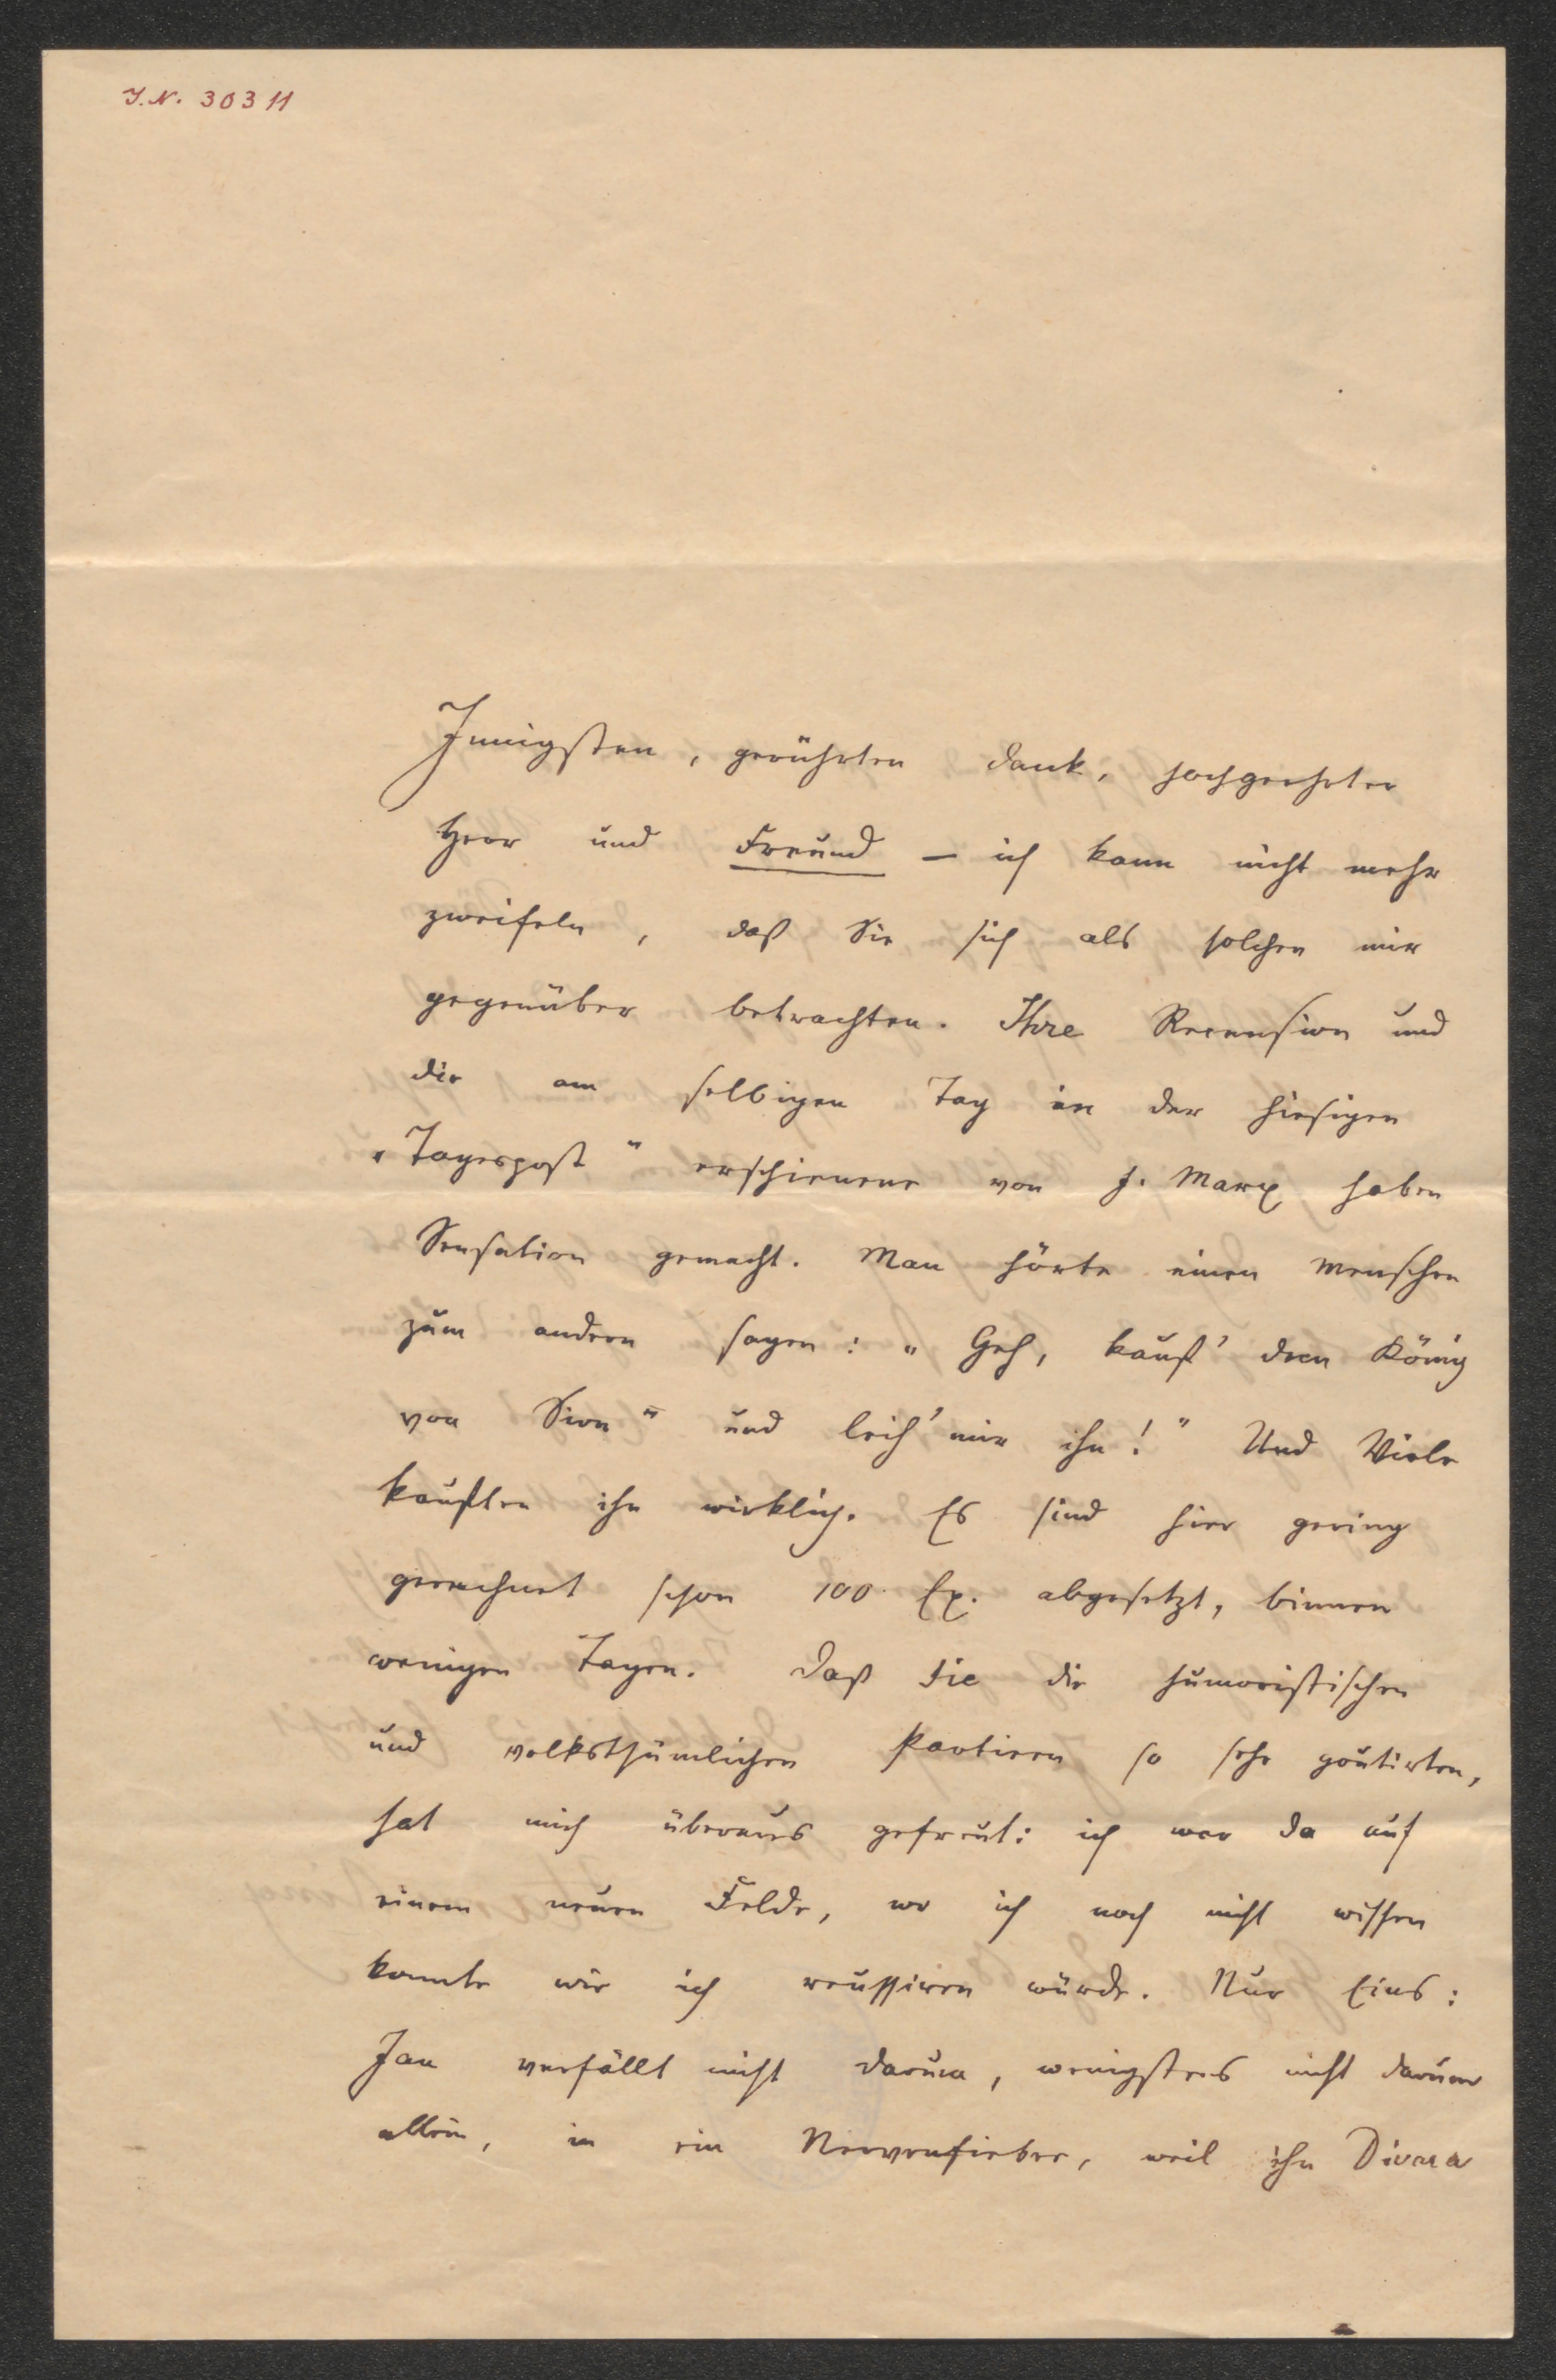 I.N. 30311
Innigsten, gerührten Dank, hochgeehrter
Herr und Freund – ich kann nicht mehr
zweifeln, daß Sie sich als solchen mir
gegenüber betrachten. Ihre Recension und
die am selbigen Tag in der hiesigen
„Tagespost“ erschienene von F. Marx haben
Sensation gemacht. Man hörte einen Menschen
zum andern sagen: „Geh, kauf' den König
von Sion“ und leih' mir ihn!“ Und Viele
kauften ihn wirklich. Es sind hier gering
gerechnet schon 100 Ex. abgesetzt, binnen
wenigen Tagen. Daß Sie die humoristischen
und volksthümlichen Partieen so sehr goutirten,
hat mich überaus gefreut: ich war da auf
einem neuen Felde, wo ich noch nicht wissen
konnte wie ich reussiren würde. Nur Eins:
Jan verfällt nicht darum, wenigstens nicht darum
allein, in ein Nervenfieber, weil ihn Divara